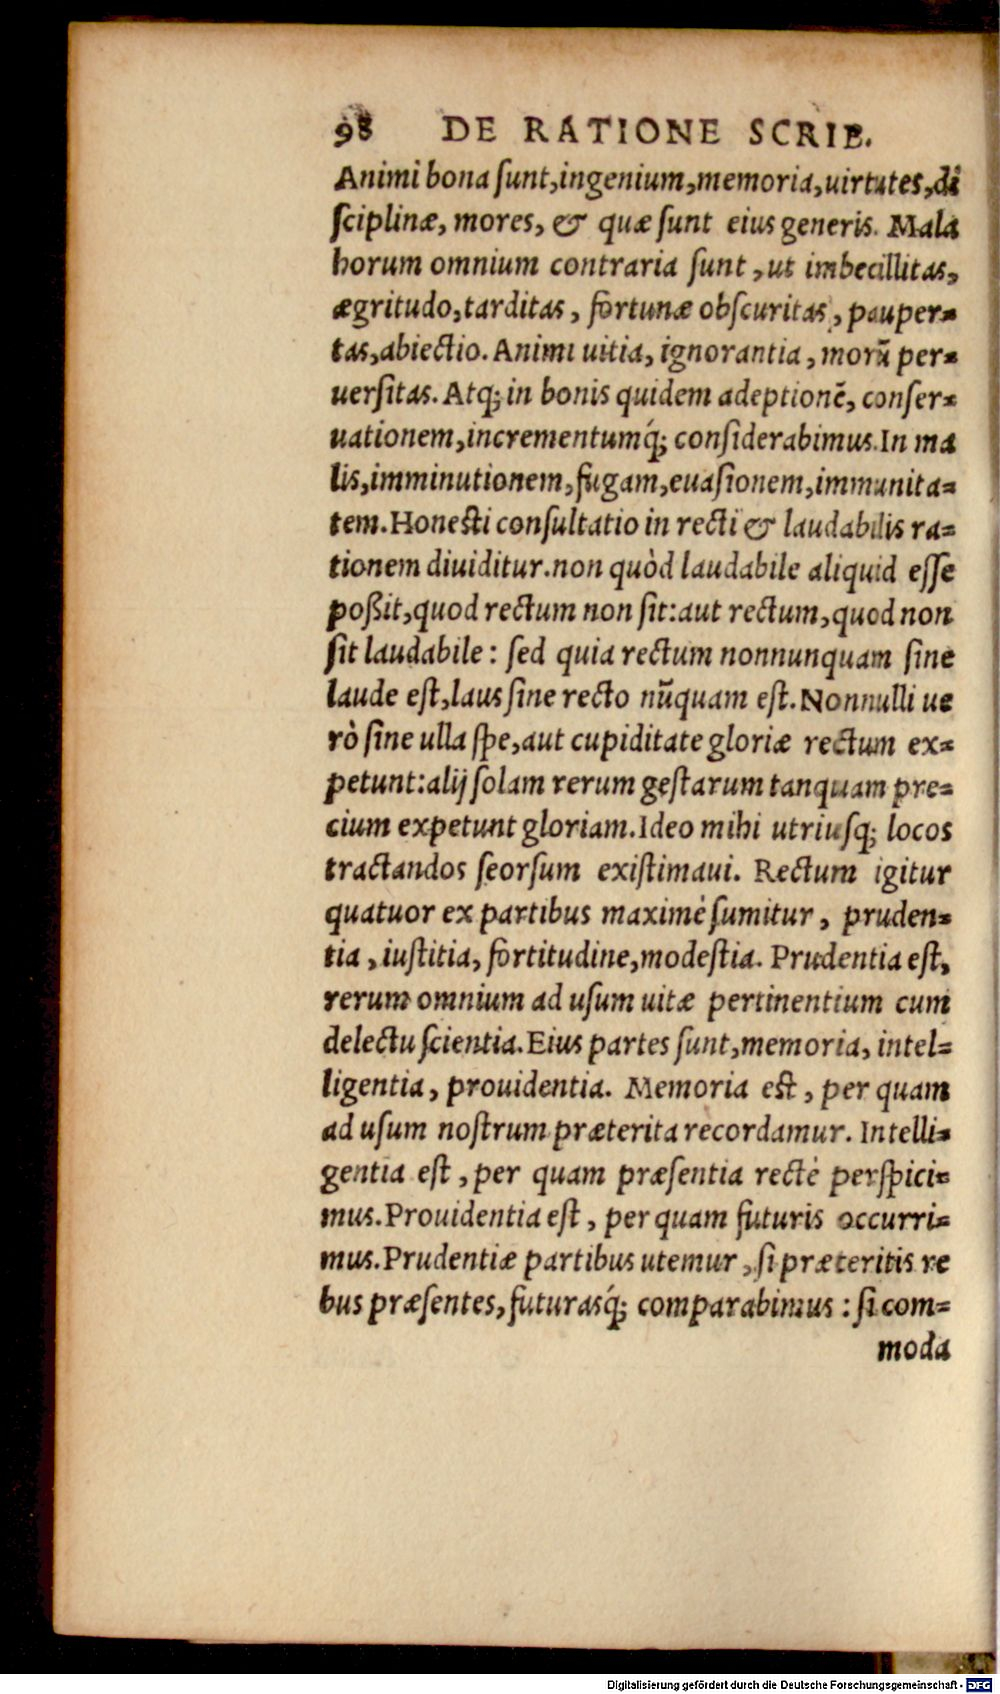 98 DE RATIONE SCRIB.
Animi bona ſunt,ingenium,memoria,uirtutes,di
ſciplinæ, mores, & quæ ſunt eius generis. Mala
horum omnium contraria ſunt, ut imbecillitas,
ægritudo,tarditas, fortunæ obſcuritas, pauper=
tas,abiectio. Animi uitia, ignorantia, morũ per=
uerſitas. Atq; in bonis quidem adeptionẽ, conſer=
uationem,incrementumq́; conſiderabimus.In ma
lis,imminutionem,fugam,euaſionem,immunita=
tem.Honeſti conſultatio in recti & laudabilis ra=
tionem diuiditur.non quòd laudabile aliquid eſſe
poßit,quod rectum non ſit:aut rectum,quod non
ſit laudabile: ſed quia rectum nonnunquam ſine
laude eſt,laus ſine recto nũquam eſt. Nonnulli ue
rò ſine ulla ſpe,aut cupiditate gloriæ rectum ex=
petunt:alij ſolam rerum geſtarum tanquam pre=
cium expetunt gloriam.Ideo mihi utriuſq; locos
tractandos ſeorſum exiſtimaui. Rectum igitur
quatuor ex partibus maximè ſumitur, pruden=
tia, iuſtitia, fortitudine,modeſtia. Prudentia eſt,
rerum omnium ad uſum uitæ pertinentium cum
delectu ſcientia.Eius partes ſunt,memoria, intel=
ligentia, prouidentia. Memoria eſt, per quam
ad uſum noſtrum præterita recordamur. Intelli=
gentia eſt, per quam præſentia rectè perſpici=
mus.Prouidentia eſt, per quam futuris occurri=
mus.Prudentiæ partibus utemur, ſi præteritis re
bus præſentes,futurasq́; comparabimus: ſi com=
moda
Digitalisierung gefördert durch die Deutsche Forschungsgemeinschaft - DFG